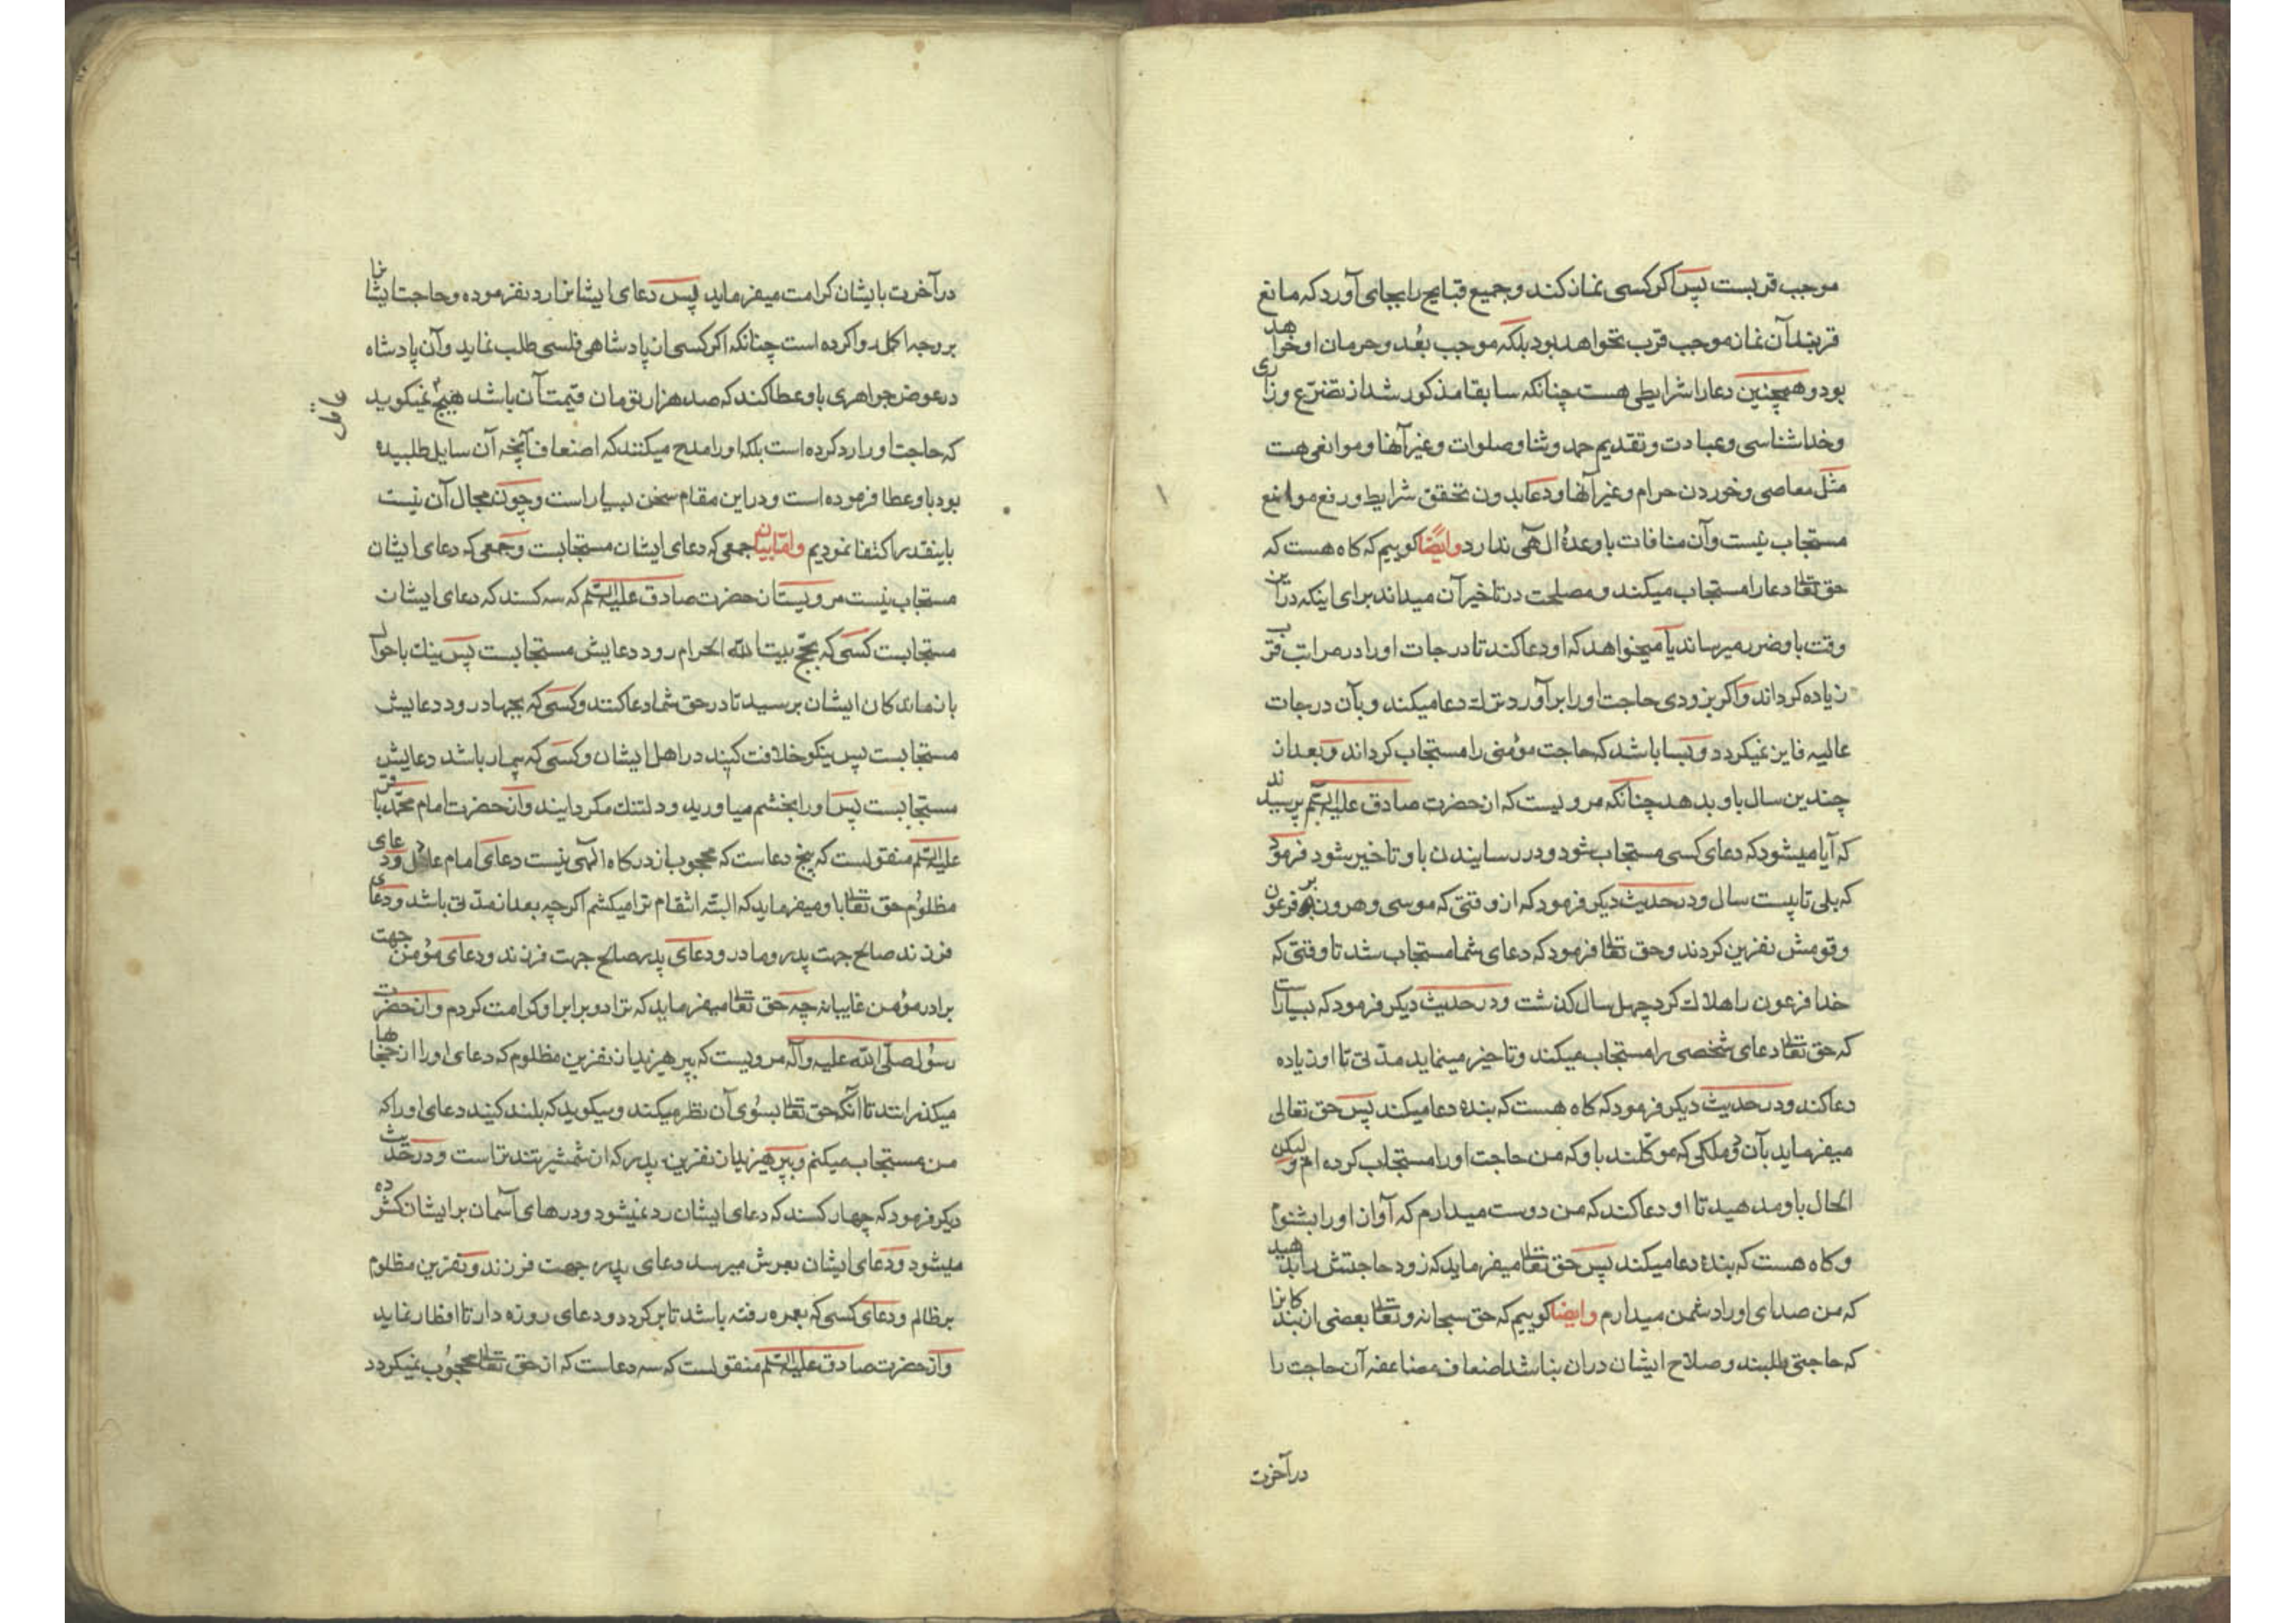 موجب قربست پس اگر کسی نماز کند و جمیع قبایح را بجای آورد که مانع
قربند آن نماز موجب قرب نخواهد بود بلکه موجب بُعد و حرمان او خواهد
بود و همچنین دعا را شرایطی هست چنانکه سابقا مذکور شد از تضرّع و زاری
و خداشناسی و عبادت و تقدیم حمد و ثنا و صلوات و غیر آنها و موانعی هست
مثل معاصی و خوردن حرام و غیر آنها و دعا بدون تحقق شرایط و رفع موانع
مستجاب نیست و آن منافات با وعدهٔ الٓهی ندارد و ایضًا گوییم که گاه هست که
حق تعالی دعا را مستجاب میکند و مصلحت در تاخیر آن میداند برای اینکه در این
وقت باو ضرر میرساند یا میخواهد که او دعا کند تا درجات او را در مراتب قرب
زیاده گرداند و اگر بزودی حاجت او را برآورد ترک دعا میکند و بآن درجات
عالیه فایز نمیگردد و بسا باشد که حاجت مؤمنی را مستجاب گرداند و بعد از
چندین سال باو بدهد چنانکه مرویست که از حضرت صادق علیه السّلم پرسیدند
که آیا میشود که دعای کسی مستجاب شود و در رسایندن باو تاخیر شود فرمود
که بلی تا بیست سال و در حدیث دیگر فرمود که از وقتی که موسی و هرون بر فرعون
و قومش نفرین کردند و حق تعالی فرمود که دعای شما مستجاب شد تا وقتی که
خدا فرعون را هلاک کرد چهل سال گذشت و در حدیث دیگر فرمود که بسیار است
که حق تعالی دعای شخصی را مستجاب میکند و تاخیر مینماید مدّتی تا او زیاده
دعا کند و در حدیث دیگر فرمود که گاه هست که بندهٔ دعا میکند پس حق تعالی
میفرماید بآن دو ملکی که موکّلند باو که من حاجت او را مستجاب کرده ام و لیکن
الحال باو مدهید تا او دعا کند که من دوست میدارم که آواز او را بشنوم
و گاه هست که بندهٔ دعا میکند پس حق تعالی میفرماید که زود حاجتش را بدهید
که من صدای او را دشمن میدارم و ایضا گوییم که حق سبحانه و تعالی بعضی از بندگانرا
که حاجتی طلبند و صلاح ایشان در آن نباشد اضعاف مضاعفه آن حاجت را
در آخرت
در آخرت بایشان کرامت میفرماید پس دعای ایشانرا رد نفرموده و حاجت ایشانرا
بر وجه اکمل روا کرده است چنانکه اگر کسی از پادشاهی فلسی طلب نماید و آن پادشاه
در عوض جواهری باو عطا کند که صد هزار تومان قیمت آن باشد هیچ نمیگوید
عاقل
که حاجت او را رد کرده است بلکه او را مدح میکنند که اضعاف آنچه آن سایل طلبیده
بود باو عطا فرموده است و در این مقام سخن بسیار است و چون مجال آن نیست
باینقدر اکتفا نمودیم و امّا بیان جمعی که دعای ایشان مستجابست و جمعی که دعای ایشان
مستجاب نیست مرویست از حضرت صادق علیه السّلم که سه کسند که دعای ایشان
مستجابست کسی که بحجّ بیت الله الحرام رود دعایش مستجابست پس نیک باحوال
بازماندگان ایشان برسید تا در حق شما دعا کنند و کسی که بجهاد رود دعایش
مستجابست پس نیکو خلافت کنید در اهل ایشان و کسی که بیمار باشد دعایش
مستجابست پس او را بخشم میاورید و دلتنک مگردایند و از حضرت امام محمّد باقر
علیه السّلم منقولست که پنج دعاست که محجوب از درگاه الٓهی نیست دعای امام عادل و دعای
مظلوم حق تعالی باو میفرماید که البتّه انتقام ترا میکشم اگرچه بعد از مدّتی باشد و دعای
فرزند صالح جهت پدر و مادر و دعای پدر صالح جهت فرزند و دعای مؤمن جهت
برادر مؤمن غایبانه چه حق تعالی میفرماید که ترا دو برابر او کرامت کردم و از حضرت
رسول صلّی الله علیه و آله مرویست که بپرهیزید از نفرین مظلوم که دعای او را از حجابها
میگذرانند تا آنکه حق تعالی بسوی آن نظر میکند و میگوید که بلند کنید دعای او را که
من مستجاب میکنم و بپرهیزید از نفرین پدر که از شمشیر تندتر است و در حدیث
دیگر فرمود که چهار کسند که دعای ایشان رد نمیشود و درهای آسمان بر ایشان کشوده
میشود و دعای ایشان بعرش میرسد دعای پدر جهت فرزند و نفرین مظلوم
بر ظالم و دعای کسی که بعمره رفته باشد تا برگردد و دعای روزه دار تا افطار نماید
و از حضرت صادق علیه السّلم منقولست که سه دعاست که از حق تعالی محجوب نمیگردد